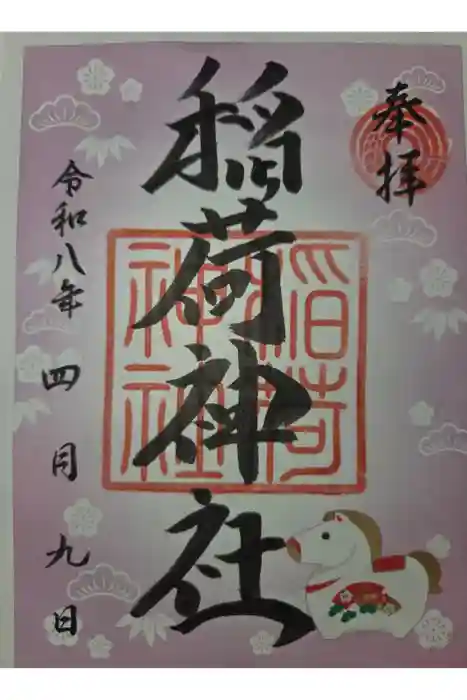 奉拝
稲荷神社
稲荷
神社
令和八年四月九日